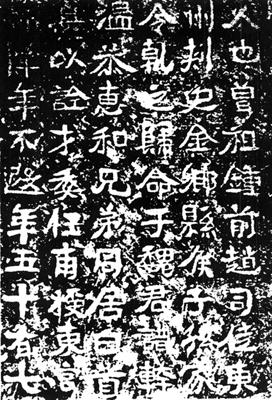 人也曾祖鍾前趙司徒東
州刺史金鄉縣侯子孫家
令軌歸命于魏君諱
溫恭惠和兄弟同居
以詮才委任甫東
年不年五十有七